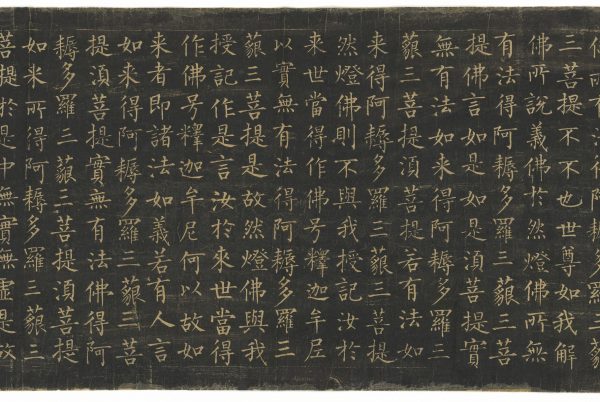 佛所有法得阿耨多羅三藐
三菩提不不也世尊如我解
佛所說義佛於然燈佛所無
有法得阿耨多羅三藐三菩
提佛言如是如是須菩提實
無有法如來得阿耨多羅三
藐三菩提須菩提若有法如
來得阿耨多羅三藐三菩提
然燈佛則不與我授記汝於
來世當得作佛号釋迦牟尼
以實無有法得阿耨多羅三
藐三菩提是故然燈佛與我
授記作是言汝於來世當得
作佛号釋迦牟尼何以故如
來者即諸法如義若有人言
如來得阿耨多羅三藐三菩
提須菩提實無有法佛得阿
耨多羅三藐三菩提須菩提
如来所得阿耨多羅三藐三
菩提於是中無實無虛是故